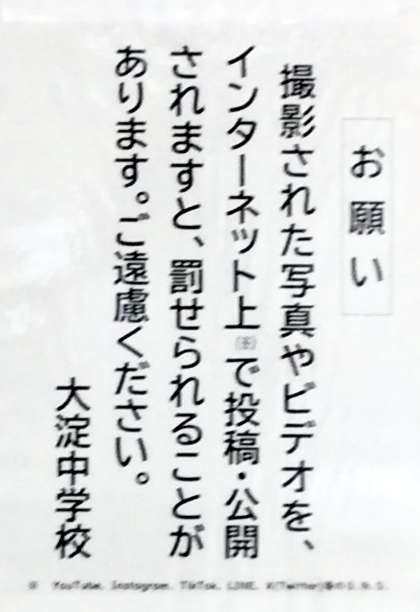 お願い
撮影された写真やビデオを、
インターネット上(※)で投稿・公開
されますと、罰せられることが
あります。ご遠慮ください。
大淀中学校
※ YouTube、Instagram、TikTok、LINE、X(Twitter)等のS.N.S.